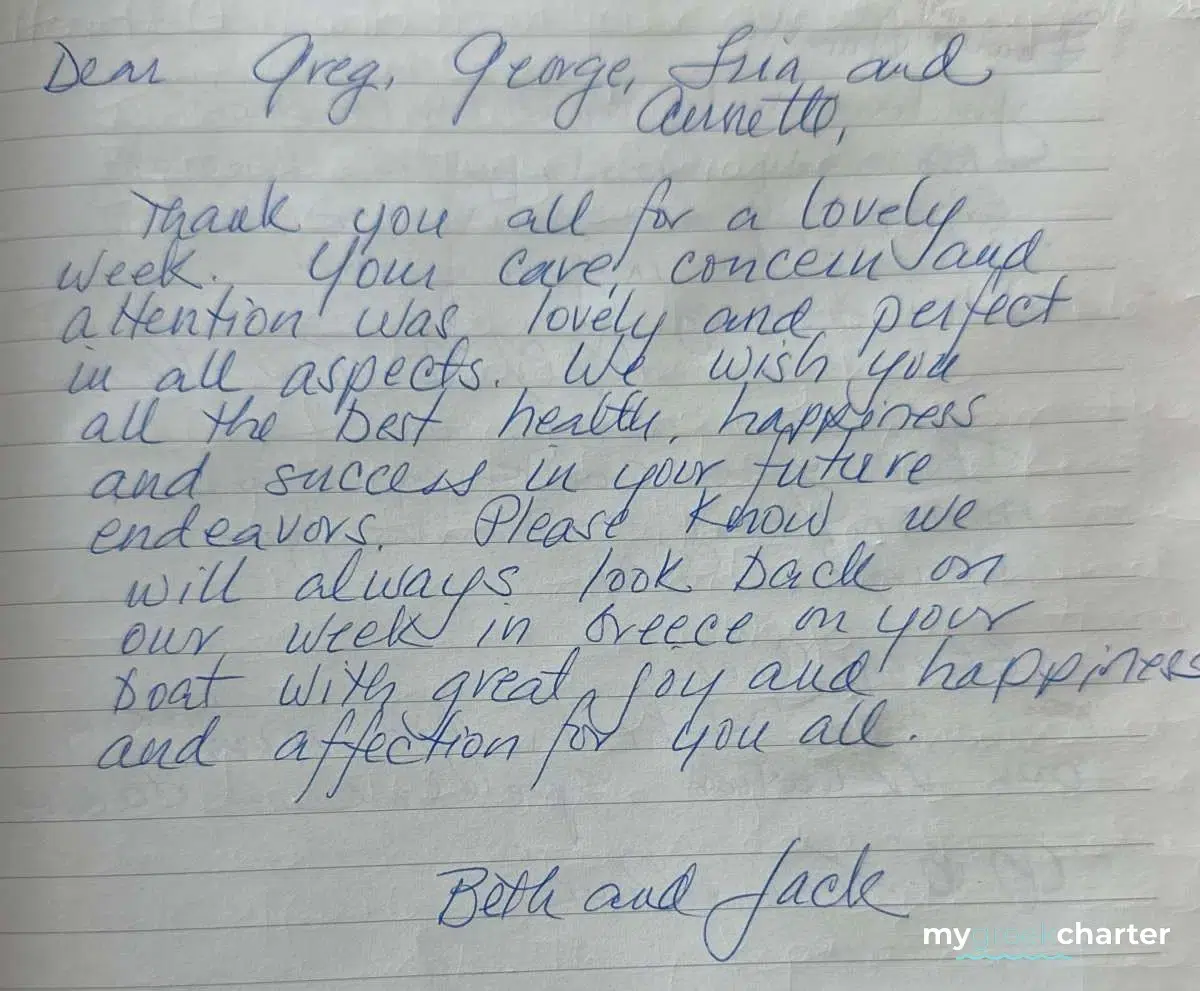 Dear Greg, George, and
Annette,
Thank you all for a lovely
week. Your care, concern and
attention was lovely and perfect
in all aspects. We wish you
all the best health, happiness
and success in your future
endeavors. Please know we
will always look back on
our week in Greece on your
boat with great joy and happiness
and affection for you all.
Beth and Jack
mygreekcharter